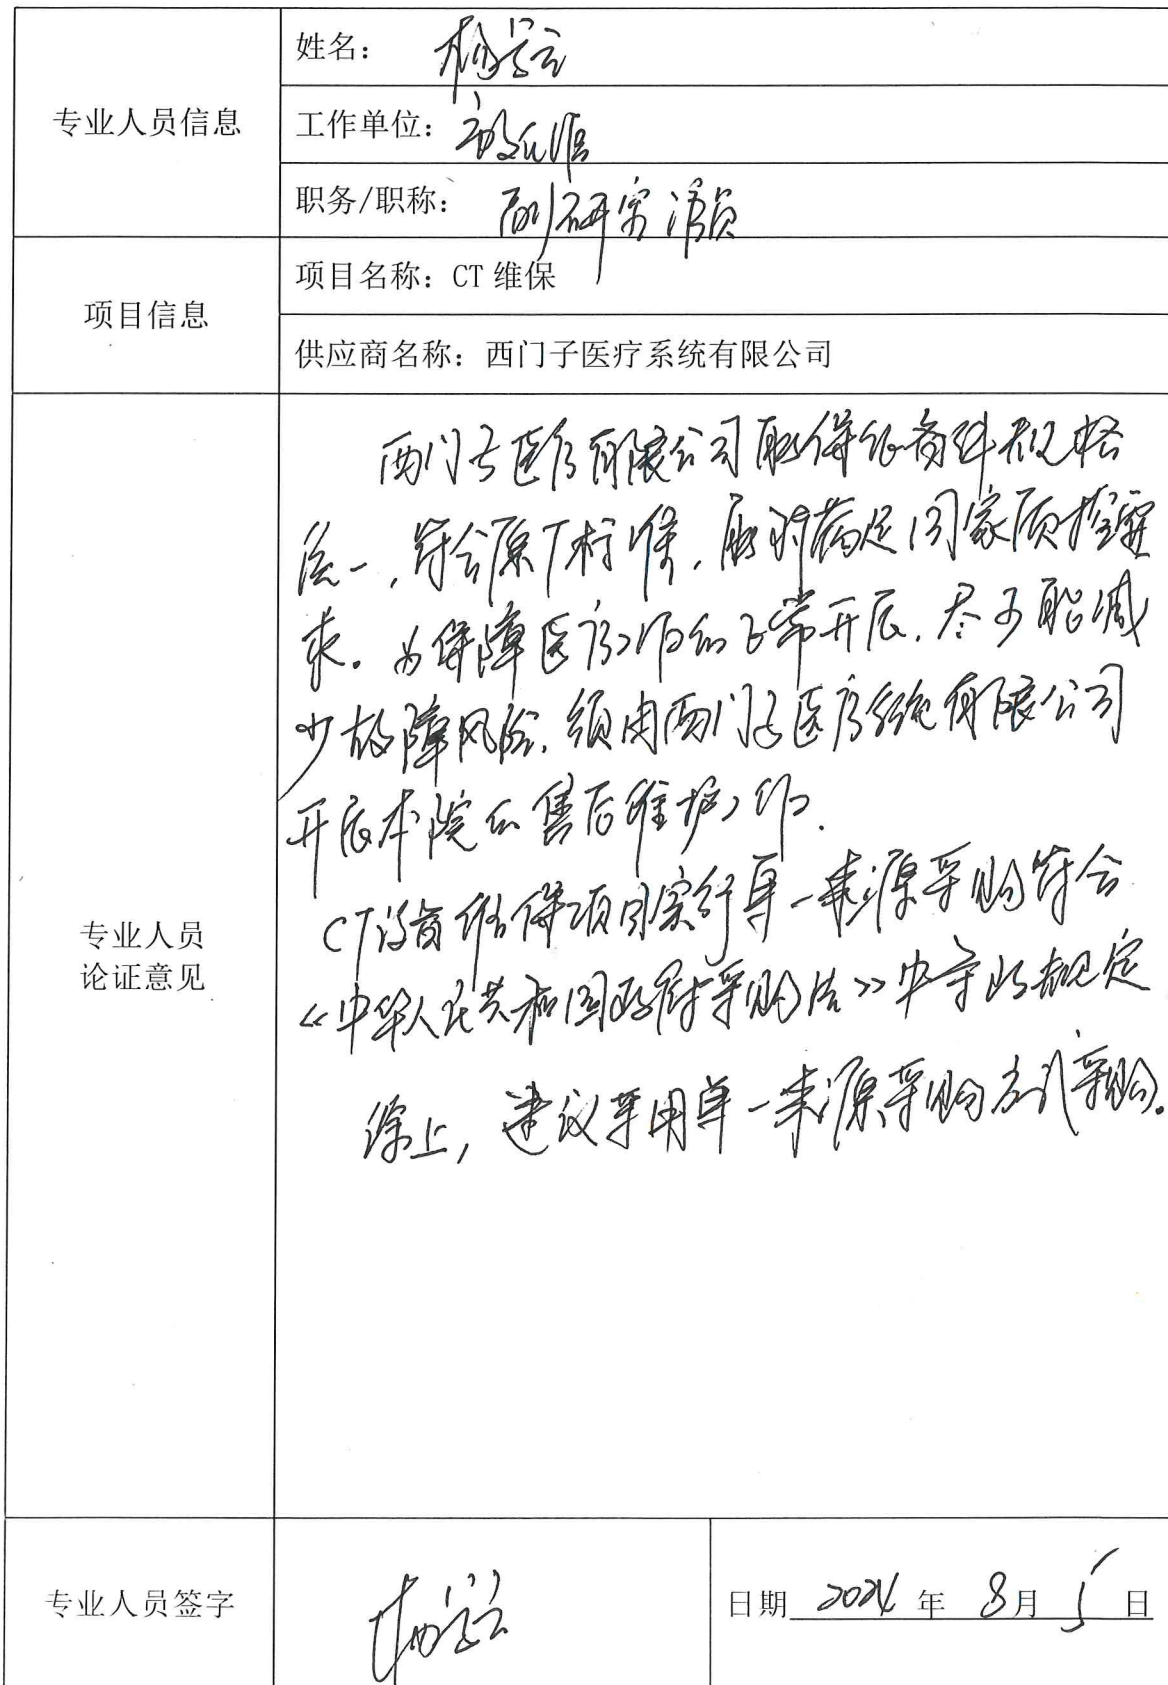 专业人员信息
姓名：
工作单位：
职务/职称：副研究馆员
项目信息
项目名称：CT 维保
供应商名称：西门子医疗系统有限公司
专业人员
论证意见
西门子医疗有限公司能保证备件规格
统一，符合原厂标准，能时满足国家质控要
求。为保障医疗工作的正常开展，尽可能减
少故障风险，须由西门子医疗系统有限公司
开展本院的售后维护工作.
CT设备维保项目实行单一来源采购符合
《中华人民共和国政府采购法》中 规定
综上，建议采用单一来源采购方式采购。
专业人员签字
日期 2024 年 8月 5 日